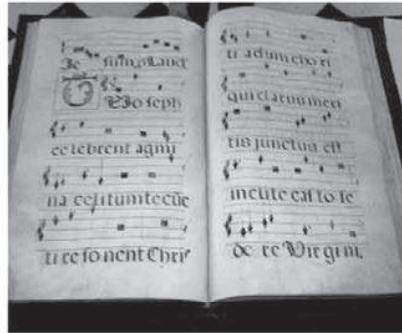 T Ioseph
ce lebrent agmi
na celitum te cūc
ti re so nent Chris
ti adum cho ri
qui clarus meri
tis junctus est
inclite cas to fe
de re Virgi ni,